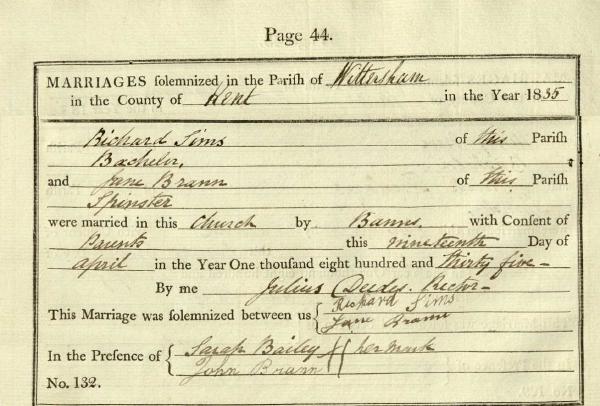 Page 44.
MARRIAGES solemnized in the Parish of Wittersham
in the County of Kent in the Year 1835
Richard Sims of this Parish
Bachelor,
and Jane Brann of this Parish
Spinster
were married in this Church by Banns. with Consent of
Parents this nineteenth Day of
April in the Year One thousand eight hundred and thirty five -
By me Julius Deedes. Rector -
This Marriage was solemnized between us { Richard Sims
Jane Brann
In the Presence of { Sarah Bailey X her mark
John Brann
No. 132.